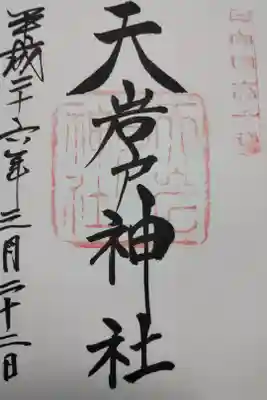 天岩戸神社
平成二十六年三月二十二日